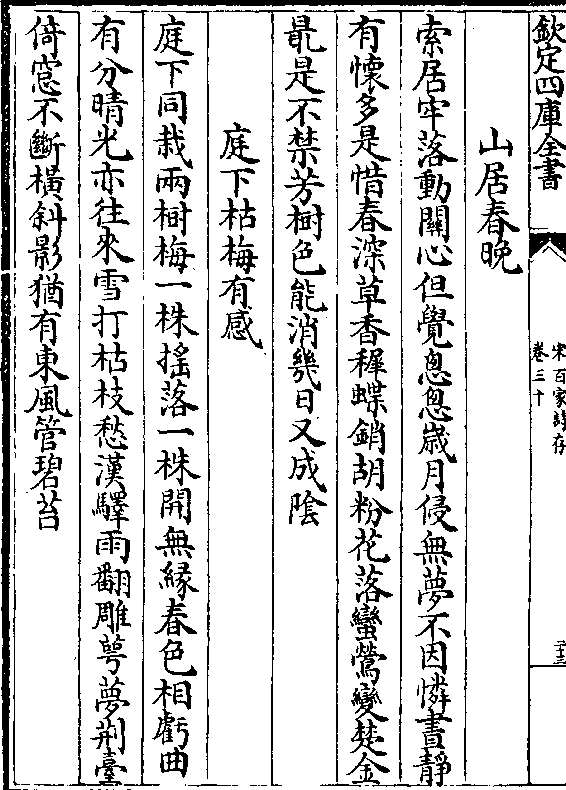 欽定四庫全書
宋百家詩存
卷三十
二十三
山居春晚
索居牢落動關心但覺怱怱歲月侵無夢不因憐晝靜
有懷多是惜春深草香穉蝶銷胡粉花落蠻鶯變楚金
最是不禁芳樹色能消幾日又成陰
庭下枯梅有感
庭下同栽兩樹梅一株搖落一株開無緣春色相虧曲
有分晴光亦往來雪打枯枝愁漢驛雨翻雕萼夢荆臺
倚窓不斷橫斜影猶有東風管碧苔